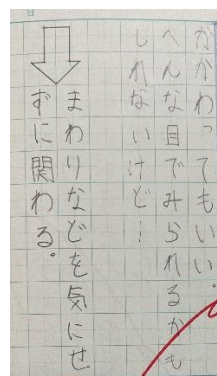 かかわってもいい。
へんな目でみられるかも
しれないけど…
まわりなどを気にせ
ずに関わる。